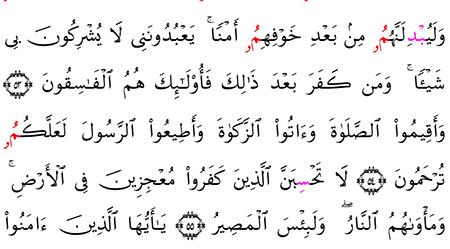 وَلَيُبْدِلَنَّهُمُۥ مِنۢ بَعْدِ خَوْفِهِمُۥ أَمْنٗاۚ يَعْبُدُونَنِي لَا يُشْرِكُونَ بِي
شَيْـٔٗاۚ وَمَن كَفَرَ بَعْدَ ذَٰلِكَ فَأُوْلَٰٓئِكَ هُمُ ٱلْفَٰسِقُونَ ٥٣
وَأَقِيمُواْ ٱلصَّلَوٰةَ وَءَاتُواْ ٱلزَّكَوٰةَ وَأَطِيعُواْ ٱلرَّسُولَ لَعَلَّكُمُۥ
تُرْحَمُونَ ٥٤ لَا تَحْسِبَنَّ ٱلَّذِينَ كَفَرُواْ مُعْجِزِينَ فِي ٱلْأَرْضِۚ
وَمَأْوَىٰهُمُ ٱلنَّارُۖ وَلَبِئْسَ ٱلْمَصِيرُ ٥٥ يَٰٓأَيُّهَا ٱلَّذِينَ ءَامَنُواْ